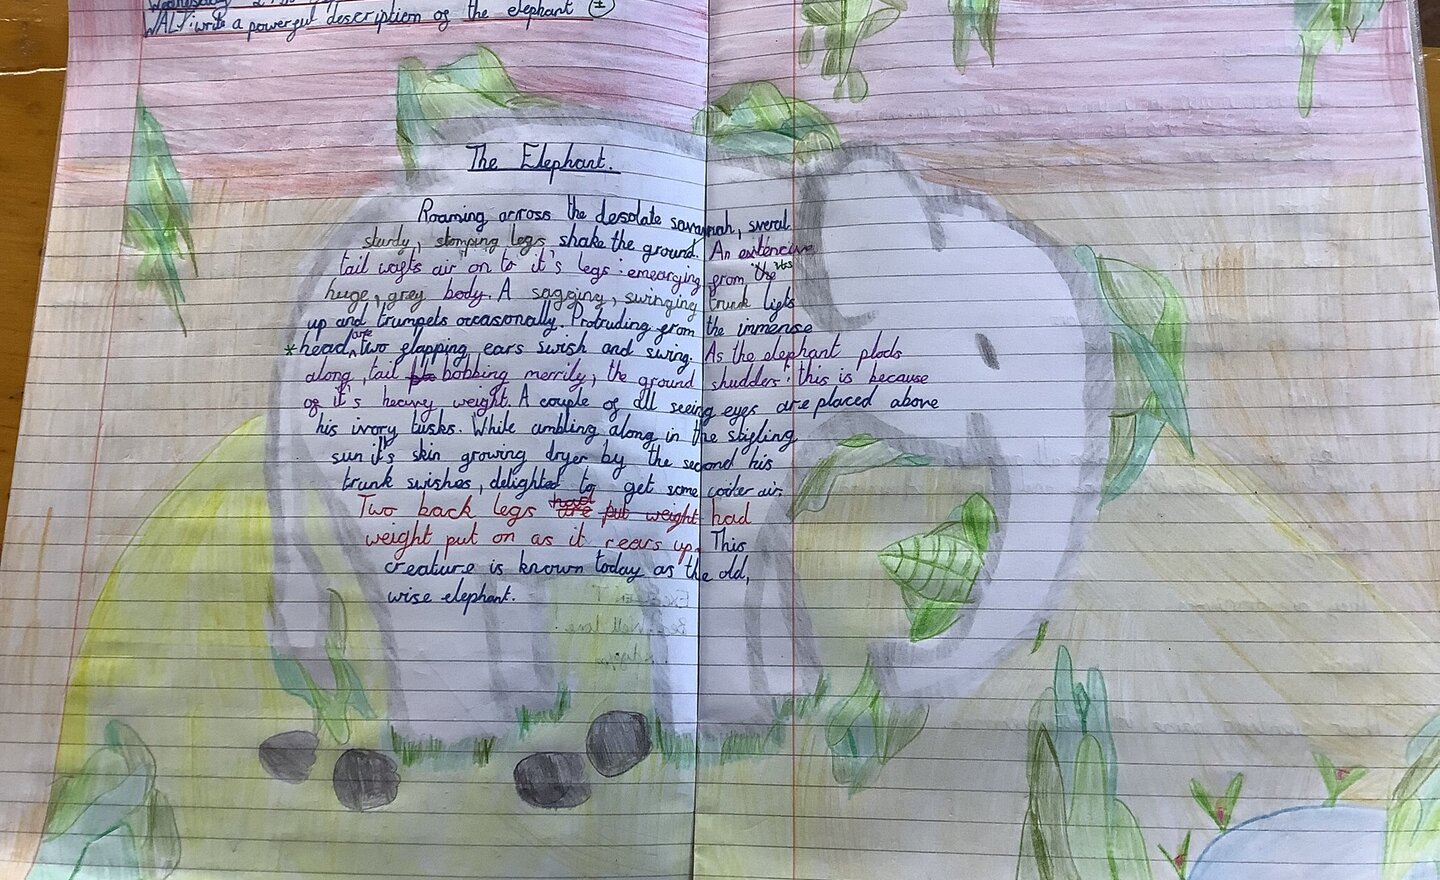 Wednesday
WALT: write a powerful description of the elephant
The Elephant.
Roaming across the desolate savannah, sveral
sturdy, stomping legs shake the ground. An extencive
tail wafts air on to it's legs: emearging from the its
huge, grey body. A sagging, swinging trunk lifts
up and trumpets occasonally. Protruding from the immense
* head, are two flapping ears swish and swing. As the elephant plods
along, tail bobbing merrily, the ground shudders: this is because
of it's heavy weight. A couple of all seeing eyes are placed above
his ivory tusks. While ambling along in the stifling
sun it's skin growing dryer by the second his
trunk swishes, delighted to get some cooler air.
Two back legs had are put weight had
weight put on as it rears up. This
creature is known today as the old,
wise elephant.